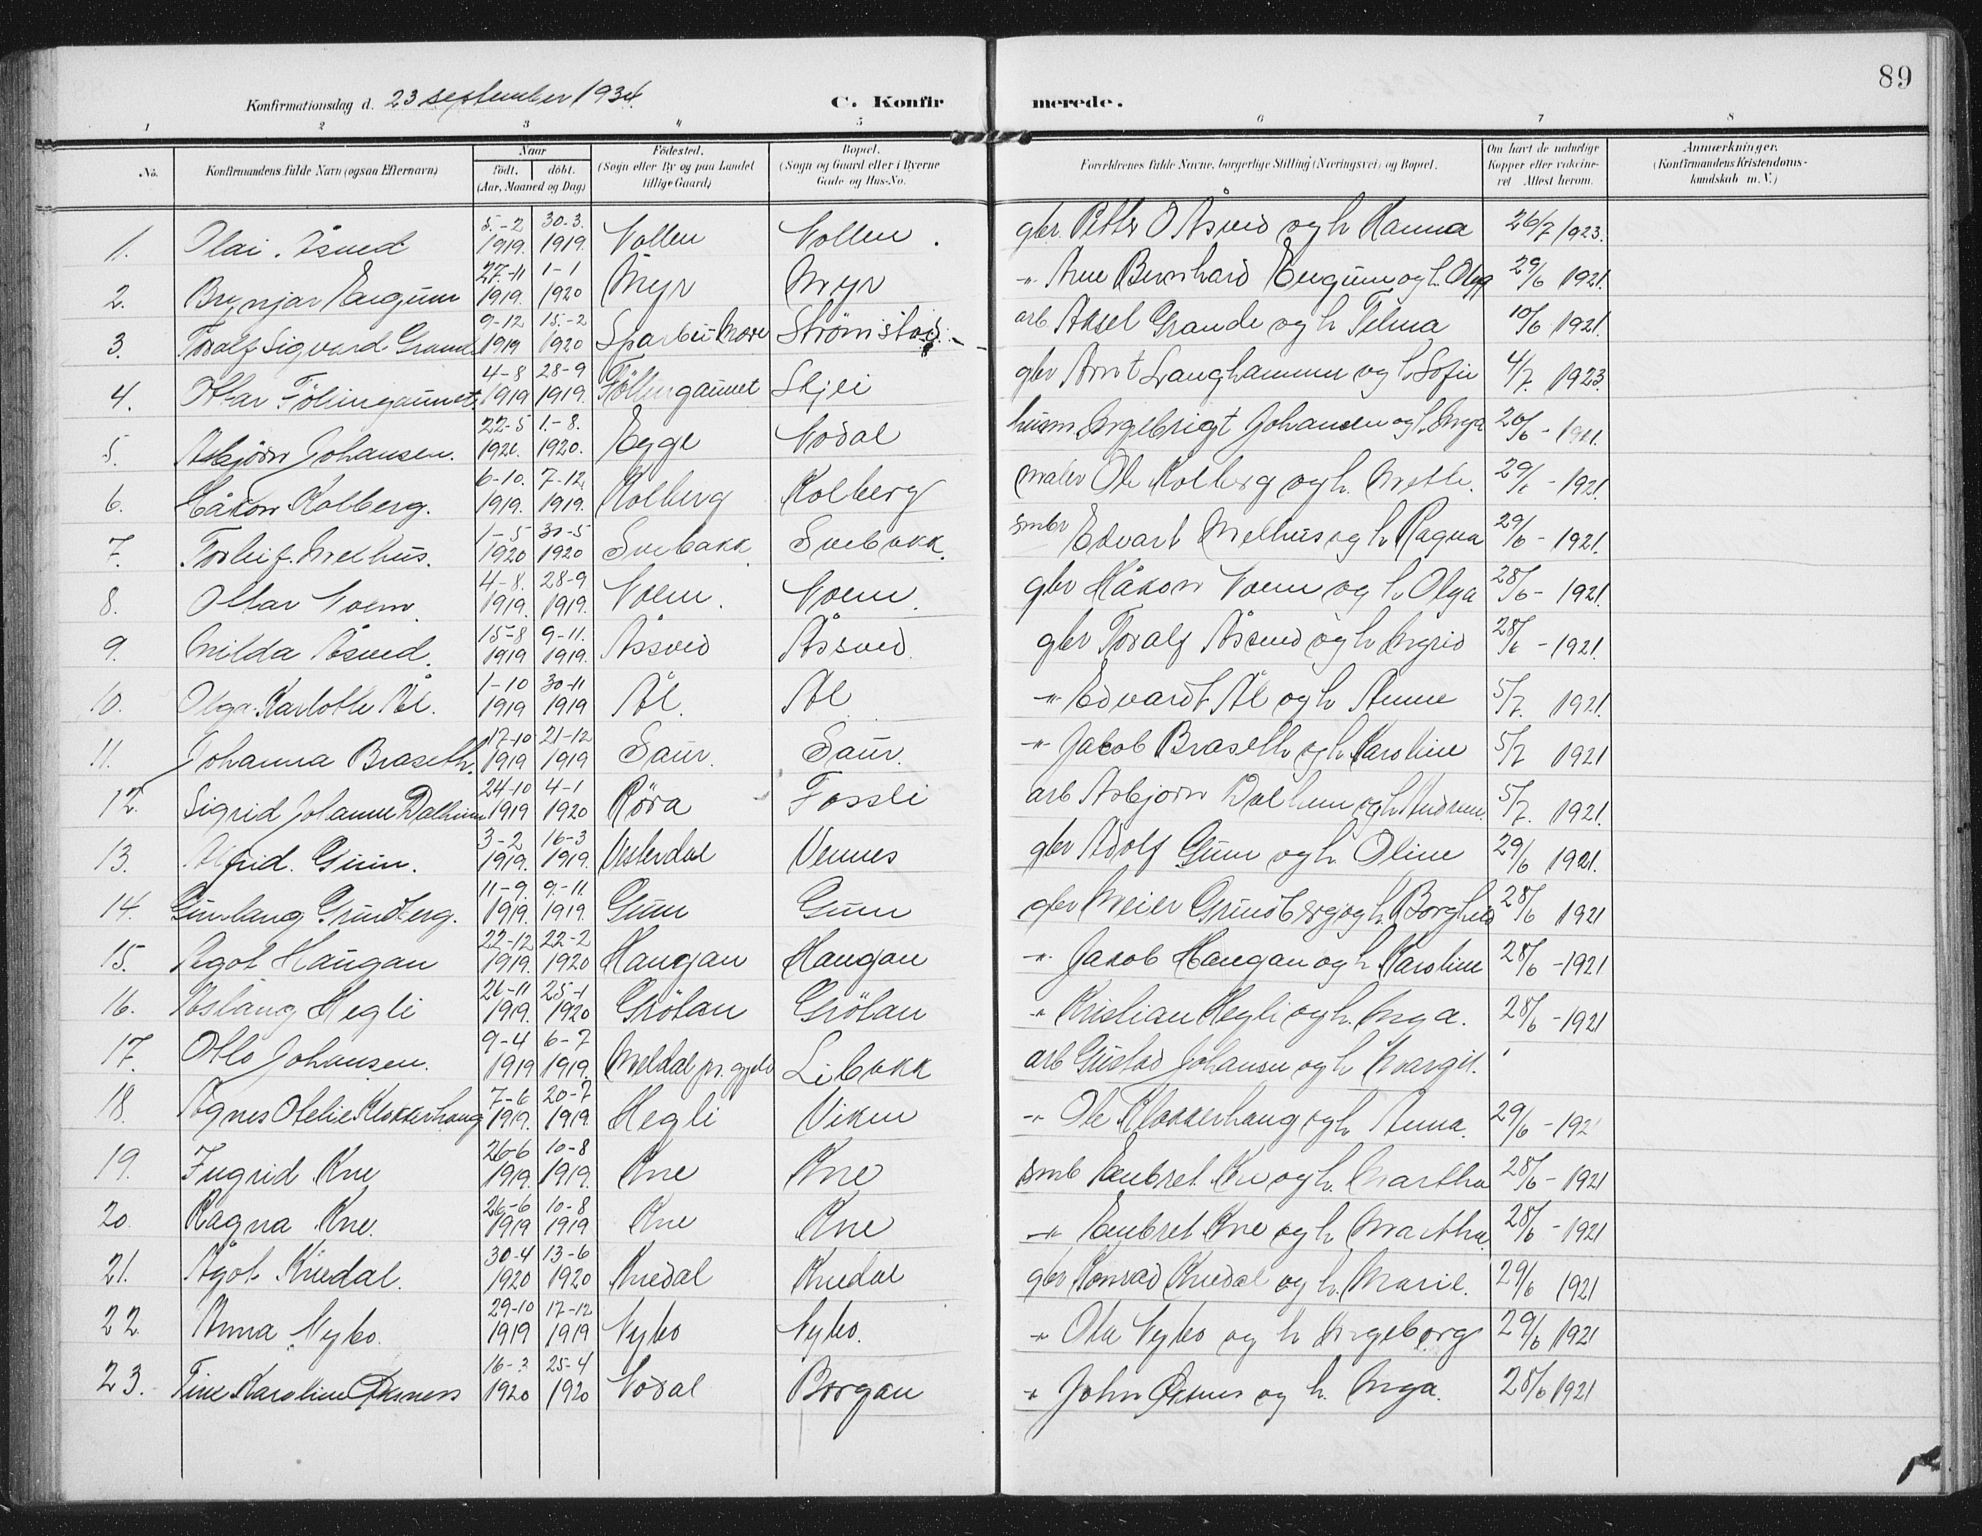 89
Konfirmationsdag d. 23 september 1934. C. Konfirmerede.
1 2 3 4 5 6 7 8
No. Konfirmandens fulde Navn (ogsaa Efternavn) Naar født. døbt. (Aar, Maaned og Dag) Fødested. (Sogn eller By og paa Landet tillige Gaard) Bopæl. (Sogn og Gaard eller i Byerne Gade og Hus-No. Forældrenes fulde Navne, borgerlige Stilling (Næringsvei) og Bopæl. Om havt de naturlige Kopper eller vakcineret Attest herom. Anmærkninger. (Konfirmandens Kristendomskundskab m. V.)
1. Olai Åsved 5-2 1919. 30-3. 1919. Vollen Vollen. gbr. Petter O Åsved og h Hanna 26/7 1923.
2. Brynjar Eugum 27-11 1919. 1-1 1920 Myr Myr -"- Arne Bernhard Eugum og h. Olga 29/6 1921.
3. Toralf Sigvard Grande 9-12 1919 15-2 1920 Sparbu-Mære Strømstad. arb Aksel Grande og h Telma 10/6 1921.
4. Ottar Følingaunet. 4-8 1919 28-9 1919. Føllingaunet Skjei gbr Arnt Langhammer og h Sofie 4/7. 1923.
5. Asbjørn Johansen. 22-5 1920. 1-8. 1920. Egge Vodal husm. Ingebrigt Johansen og h. Inga 20/6 - 1921.
6. Håkon Kolberg. 6-10. 1919. 7-12. 1919. Kolberg Kolberg maler Ole Kolberg og h. Mette. 29/6 - 1921.
7. Torleif Melhus. 1-5 1920 30-5 1920 Svebakk Svebakk. smbr Edvart Melhus og h Ragna 29/6 - 1921.
8. Ottar Voem. 4-8. 1919. 28-9 1919. Voem. Voem. gbr Håkon Voem og h. Olga 28/6 - 1921.
9. Milda Åsved. 15-8 1919 9-11. 1919. Åssved Åssved. gbr Toralf Åsved og h Ingrid 28/6 - 1921.
10. Olga Karlotte Ål. 1-10 1919 30-11 1919 Ål. Ål -"- Edvardt Ål og h Anne 5/7. 1921.
11. Johanna Braseth. 17-10 1919 21-12 1919 Saur. Saur. -"- Jakob Braseth og h Karoline 5/7 1921
12. Sigrid Johanne Dalhum 24-10 1919 4-1 1920 Røra Fossli arb Asbjørn Dalhum og h Andrea. 5/7. 1921.
13. Alfrid. Guin. 3-2 1919. 16-3 1919. Vesterdal Vennes gbr Adolf Guin og h. Oline 29/6 1921.
14. Gunlaug Grundberg. 11-9. 1919. 9-11. 1919. Guin Guin gbr Meier Grundberg og h Borghild 28/6 1921
15. Ågot Haugan 22-12 1919. 22-2 1920 Haugan Haugan -"- Jakob Haugan og h Karoline 28/6 - 1921
16. Åslaug Hegli 26-11 1919. 25-1 1920 Grøtan Grøtan -"- Kristian Hegli og h. Inga. 28/6 - 1921
17. Otto Johansen. 9-4 1919 6-7 1919. Meldal pr. gjeld Libakk arb Gustav Johansen og h Margit.
18. Agnes Otelie Klokkerhaug 7-6 1919. 20-7 1919. Hegli Viken -"- Ole Klokkerhaug og h Anna. 29/6 - 192
19. Ingrid Kne 26-6 1919. 10-8 1919. Kne Kne smb Embret Kne og h. Martha 28/6 - 1921
20. Ragna Kne. 26-6 1919 10-8 1919 Kne Kne -"- Embret Kne og h Martha. 28/6 - 1921
21. Ågot Knedal. 30-4 1920 13-6 1920 Knedal Knedal gbr Konrad Knedal og h. Marie. 29/6 1921
22. Anna Nybo. 29-10 1919 17-12 1919 Nybo Nybo. -"- Ola Nybo og h Ingeborg 29/6 1921
23. Tine Karoline Øksnes 16-3 1920 25-4 1920 Vodal Borgan -"- John Øksnes og h. Inga. 28/6 1921